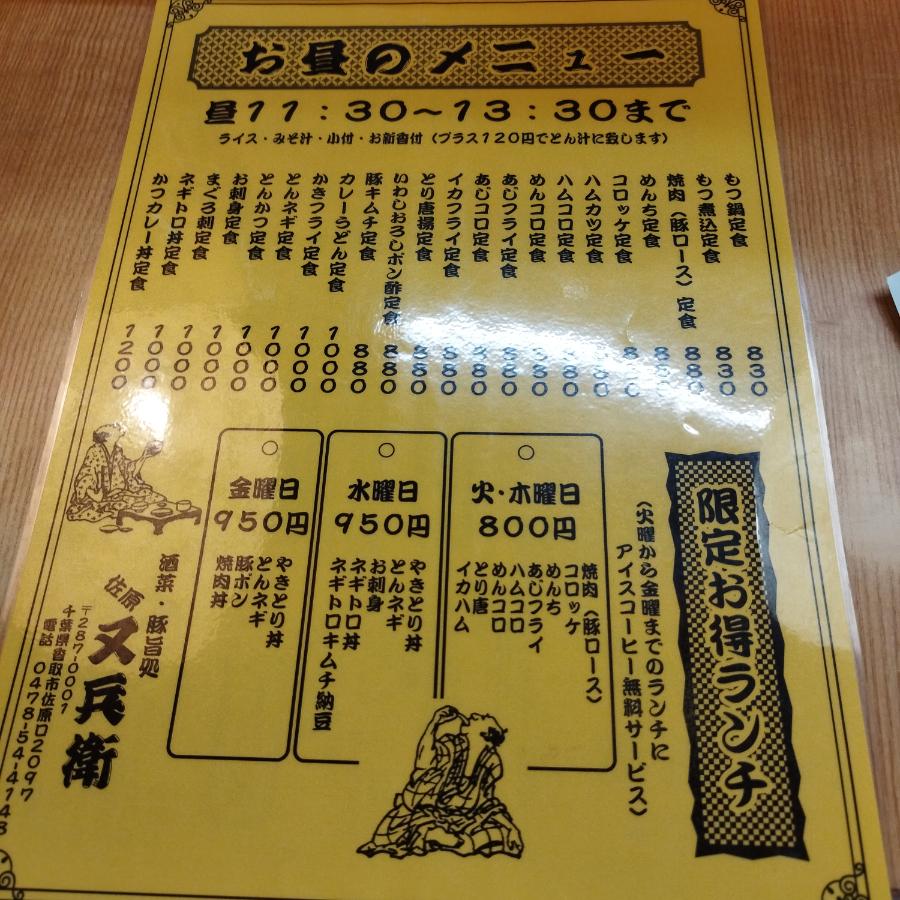 お昼のメニュー
昼11：30〜13：30まで
ライス・みそ汁・小付・お新香付（プラス120円でとん汁に致します）
もつ鍋定食 830
もつ煮込定食 830
焼肉（豚ロース）定食 880
めんち定食 880
コロッケ定食
ハムカツ定食 880
ハムコロ定食 880
めんコロ定食 880
あじフライ定食 880
あじコロ定食 880
イカフライ定食 880
とり唐揚定食 880
いわしおろしポン酢定食 880
豚キムチ定食 880
カレーうどん定食 1000
かきフライ定食 1000
とんネギ定食 1000
とんかつ定食 1000
お刺身定食 1000
まぐろ刺定食 1000
ネギトロ丼定食 1000
かつカレー丼定食 1200
限定お得ランチ
（火曜から金曜までのランチに
アイスコーヒー無料サービス）
火・木曜日
800円
焼肉（豚ロース）
コロッケ
めんち
あじフライ
ハムコロ
めんコロ
とり唐
イカハム
水曜日
950円
やきとり丼
とんネギ
お刺身
ネギトロ丼
ネギトロキムチ納豆
金曜日
950円
やきとり丼
とんネギ
豚ポン
焼肉丼
酒菜・豚旨処
佐原 又兵衛
〒287-0001
千葉県香取市佐原ロ2097
電話 0478-54-4148